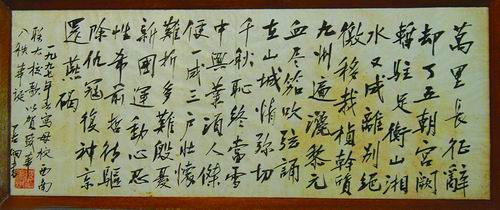 萬里長征辭
却了五朝宮闕
暫駐足衡山湘
水又成離別絕
徼移栽楨幹質
九州遍灑黎元
血盡笳吹弦誦
在山城情彌切
千秋恥終當雪
中興業須人傑
便一成三戶壯懷
難折多難殷憂
新國運動心忍
性希前哲待驅
除仇寇復神京
還燕碣
一九九七年 寫母校西南
聯大校歌以賀
八秩華誕